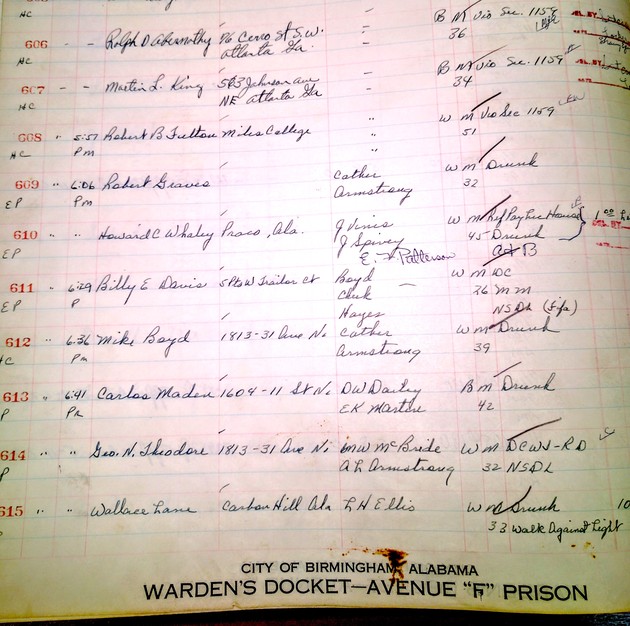 HC
606 " - Rolph D Abernathy 76 Cerro St S.W. - B M Vio Sec. 1159
HC Atlanta Ga. - 36
607 - - Martin L. King 563 Johnson Ave - B M Vio Sec. 1159
HC NE Atlanta Ga - 34
608 " 5:57 Robert B Fulton Miles College " W M Vio Sec 1159
HC Pm " 51
609 " 6:06 Robert Graves Cather W M Drunk
EP Pm Armstrong 32
610 " " Howard C Whaley Praco, Ala. J Vines W M Ref Pay Fee House } 1 00
EP J Spivey 45 Drunk
E. H Patterson A & B
611 " 6:29 Billy E Davis 5 Pts W Trailor Ct Boyd - W M DC
EP P Cheek 26 MM
Hayes NSDL (fifa)
612 " 6:36 Mike Boyd 1813-31 Ave N. Cather W M Drunk
HC Pm Armstrong 39
613 " 6:41 Carlos Maden 1604-11 St N. DW Dailey B M Drunk
P Pm EK Martin 42
614 " " Geo. N. Theodore 1813-31 Ave N. MW McBride W M DCWI-RD
P A L Armstrong 32 NSDL
615 " " Wallace Lane Carbon Hill Ala L H Ellis W M Drunk 10
33 Walk Against Light
CITY OF BIRMINGHAM, ALABAMA
WARDEN'S DOCKET—AVENUE "F" PRISON